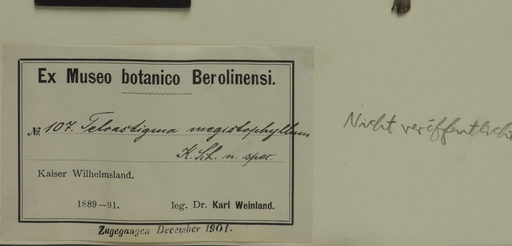 Ex Museo botanico Berolinensi.
№ 107. Tetrastigma megistophyllum
K. Sch. n. spec
Kaiser Wilhelmsland.
1889—91. leg. Dr. Karl Weinland.
Zugegangen December 1901.
Nicht veröffentlicht